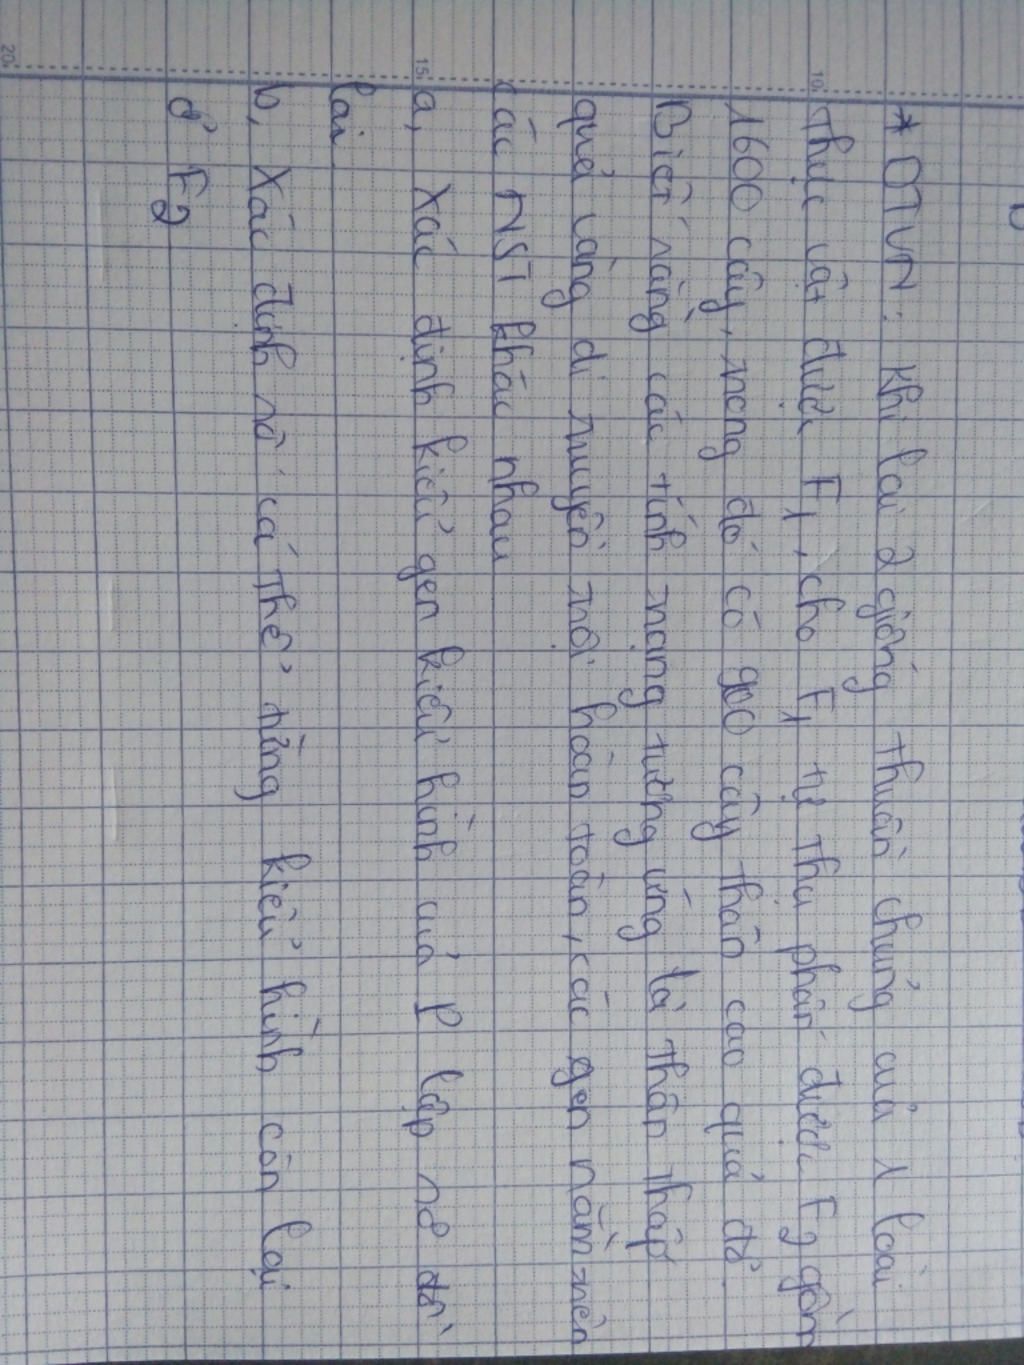 * OTVN: Khi lai 2 giống thuần chủng của 1 loài
thực vật được F1, cho F1 tự thụ phấn được F2 gồm
1600 cây, trong đó có 900 cây thân cao quả đỏ.
Biết rằng các tính trạng tương ứng là thân thấp
quả vàng di truyền trội hoàn toàn, các gen nằm trên
các NST khác nhau
a, Xác định kiểu gen kiểu hình của P lập sơ đồ
lai
b, Xác định số cá thể từng kiểu hình còn lại
ở F2
10
15
20